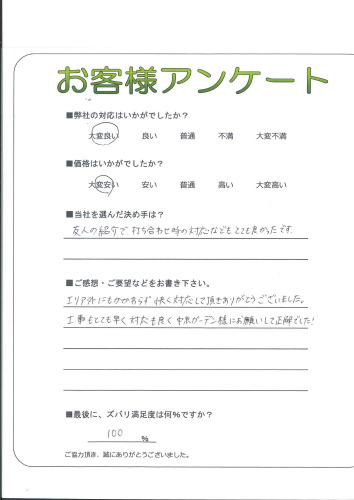 お客様アンケート
■弊社の対応はいかがでしたか?
大変良い 良い 普通 不満 大変不満
■価格はいかがでしたか?
大変安い 安い 普通 高い 大変高い
■当社を選んだ決め手は?
友人の紹介で打ち合わせ時の対応などもとても良かったです.
■ご感想・ご要望などをお書き下さい。
エリア外にもかかわらず快く対応して頂きありがとうございました。
工事もとても早く対応も良く中京ガーデン様にお願いして正解でした!
■最後に、ズバリ満足度は何%ですか?
100 %
ご協力頂き、誠にありがとうございました。